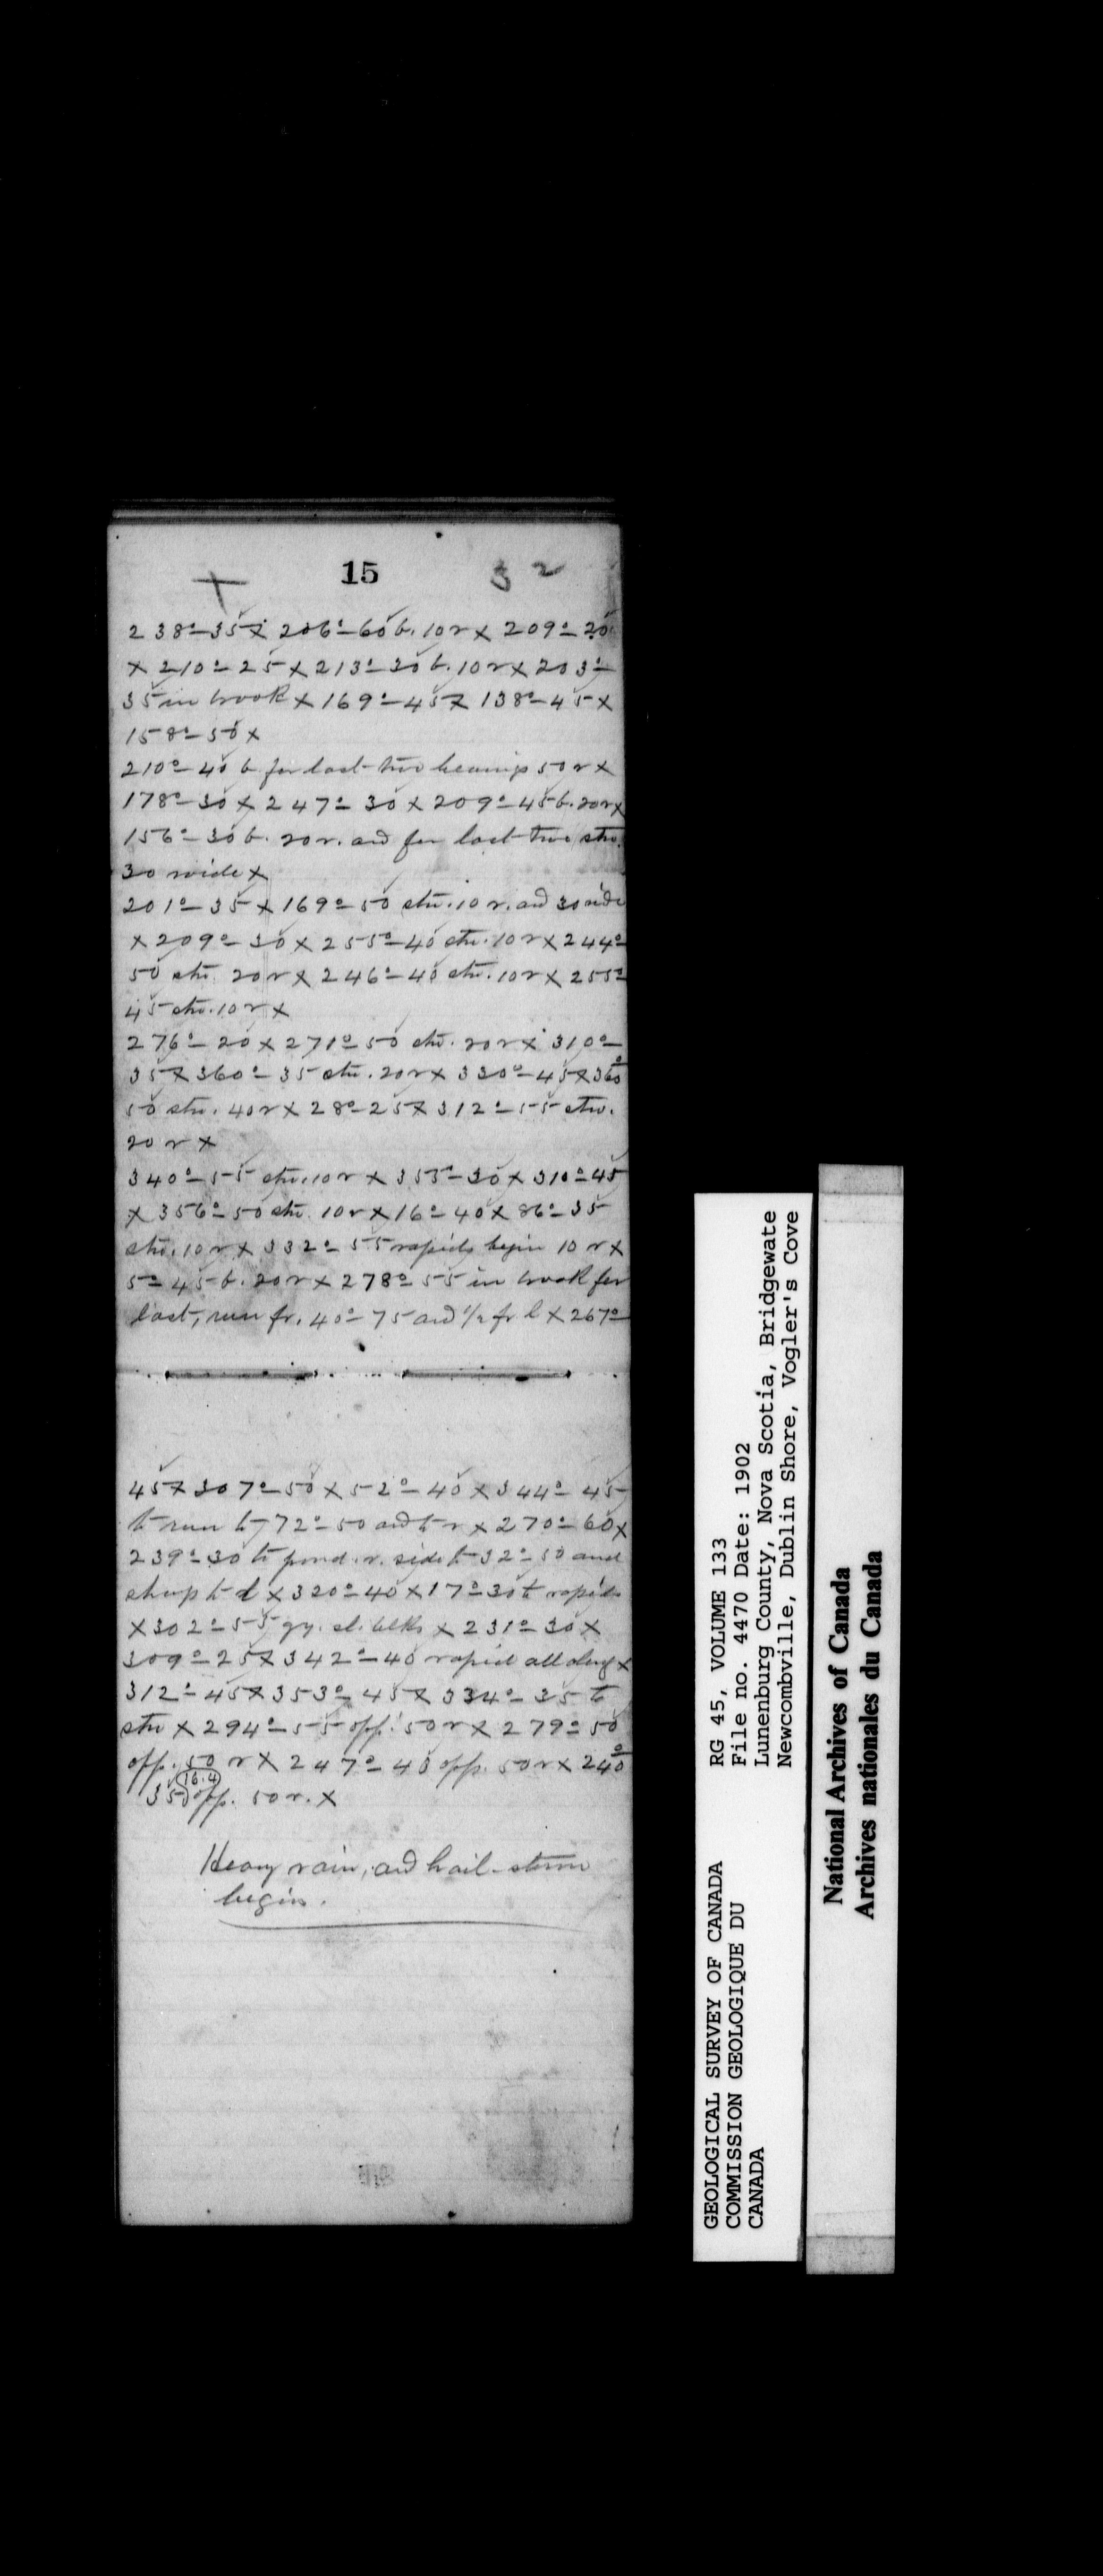 15 32
238°-35 x 206°-60 b. 10 r x 209°-20
x 210°-25 x 213°-30 b. 10 r x 203°-
35 in brook x 169°-45 x 138°-45 x
158°-50 x
210°-40 b for last two bearings 50 r x
178°-30 x 247°-30 x 209°-45 b. 20 r x
156°-30 b. 20 r. and for last two str.
30 wide x
201°-35 x 169°-50 str. 10 r. and 30 wide
x 209°-30 x 255°-40 str. 10 r x 244°-
50 str. 20 r x 246°-40 str. 10 r x 255°-
45 str. 10 r x
276°-20 x 271°-50 str. 20 r x 310°-
35 x 360°-35 str. 20 r x 330°-45 x 360°
50 str. 40 r x 28°-25 x 312°-55 str.
20 r x
340°-55 str. 10 r x 353°-30 x 310°-45
x 356°-50 str. 10 r x 16°-40 x 86°-35
str. 10 r x 332°-55 rapids begin 10 r x
5°-45 b. 20 r x 278°-55 in brook for
last, run fr. 40°-75 and 1/2 fr l x 267°-
45 x 307°-50 x 52°-40 x 344°-45
to run to 72°-50 and to r x 270°-60 x
239°-30 to pond. r. side to 32°-50 and
sharp to l x 320°-40 x 17°-30 to rapids
x 302°-55 gy. sl. blks x 231°-30 x
309°-25 x 342°-40 rapid all along x
312°-45 x 353°-45 x 334°-35 to
str x 294°-55 opp. 50 r x 279°-50
opp. 50 r x 247°-40 opp. 50 r x 240°
16.4
35 opp. 50 r. x
Heavy rain, and hail-storm
begin.
GEOLOGICAL SURVEY OF CANADA
COMMISSION GEOLOGIQUE DU
CANADA
RG 45, VOLUME 133
File no. 4470 Date: 1902
Lunenburg County, Nova Scotia, Bridgewate
Newcombville, Dublin Shore, Vogler's Cove
National Archives of Canada
Archives nationales du Canada